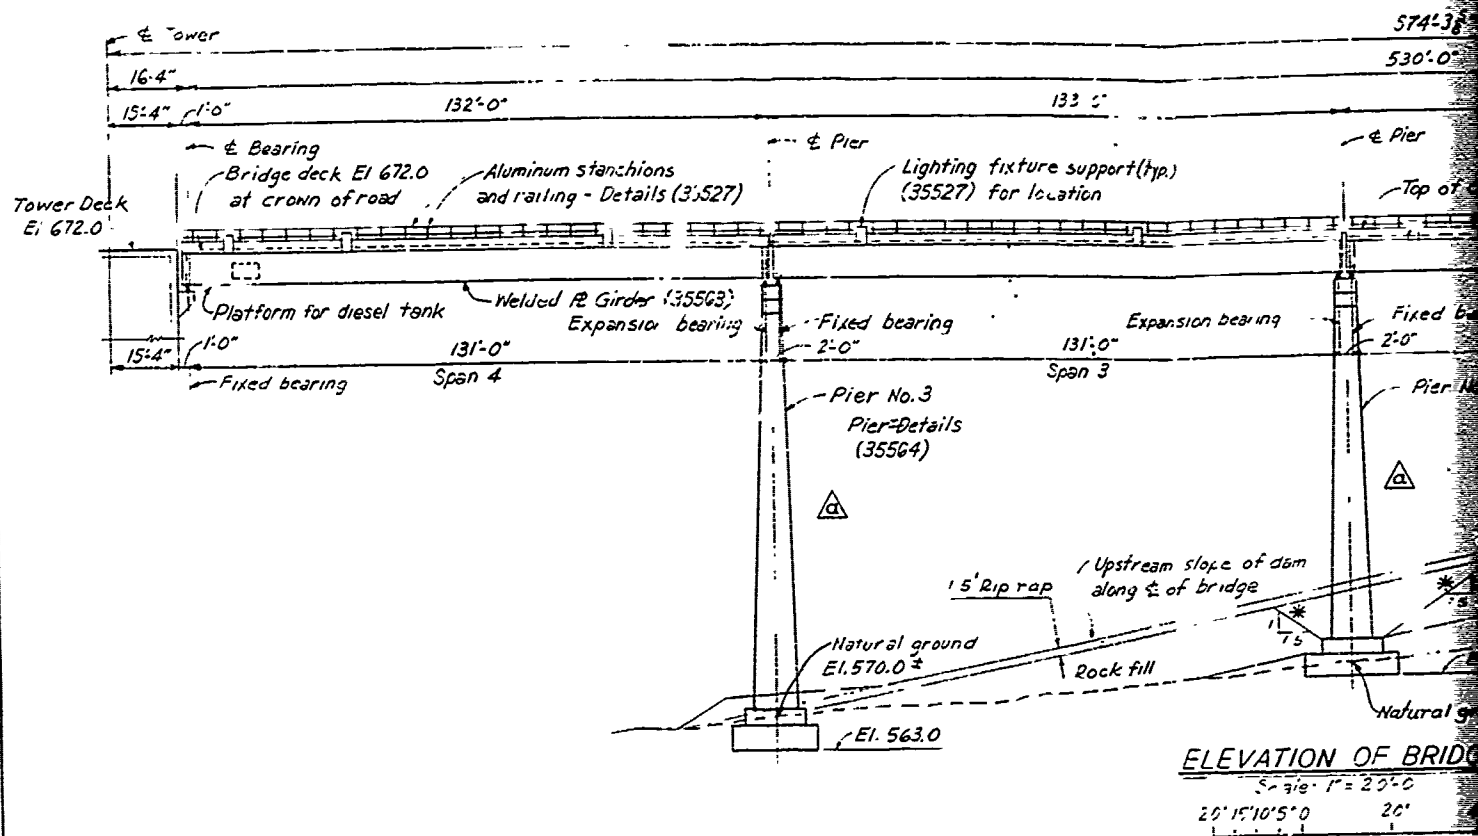 574'-3 5/8
℄ Tower
530'-0"
16-4"
15'-4"
1'-0"
132'-0"
133
℄ Bearing
℄ Pier
℄ Pier
Bridge deck El 672.0
at crown of road
Aluminum stanchions
and railing - Details (35527)
Lighting fixture support (typ.)
(35527) for location
Top of
Tower Deck
El 672.0
Platform for diesel tank
Welded ℙL Girder (35563)
Expansion bearing
Fixed bearing
Expansion bearing
Fixed
15'-4"
1'-0"
131'-0"
2'-0"
131'-0"
2'-0"
Span 4
Span 3
Fixed bearing
Pier No. 3
Pier-Details
(35564)
Pier
a
a
Upstream slope of dam
along ℄ of bridge
1 5' Rip rap
Natural ground
El. 570.0 ±
Rock fill
1
1 5
Natural
El. 563.0
ELEVATION OF BRIDG
Scale: 1" = 20'-0
20' 15' 10' 5' 0
20'